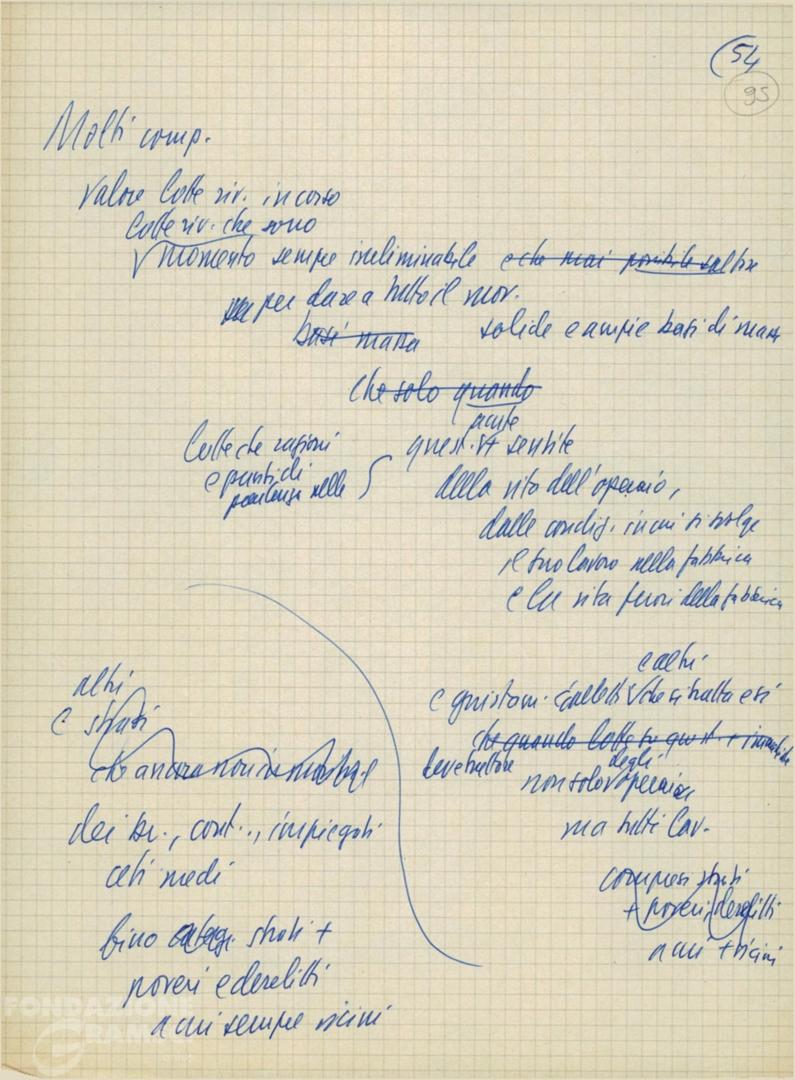 (54
95
Molti comp.
Valore lotte riv. in corso
lotte riv. che sono
momento sempre ineliminabile e che mai possibile
per dare a tutto il mov.
basi massa solide e ampie basi di massa
che solo quando
acute
Lotte che ragioni quest. sentite
e punti di
partenza nelle della vita dell'operaio,
dalle condiz. in cui si svolge
il suo lavoro nella fabbrica
e la vita fuori della fabbrica
altri
e strati
che ancora non
dei br., cont.., impiegati
ceti medi
fino categ. strati +
poveri e derelitti
a cui sempre vicini
e altri
e giustam. che si tratta e si
che quando lotte su quest.
deve trattare degli
non solo operai
ma tutti lav.
compresi strati
+ poveri, derelitti
a cui + vicini
FONDAZIONE
GRAMSCI